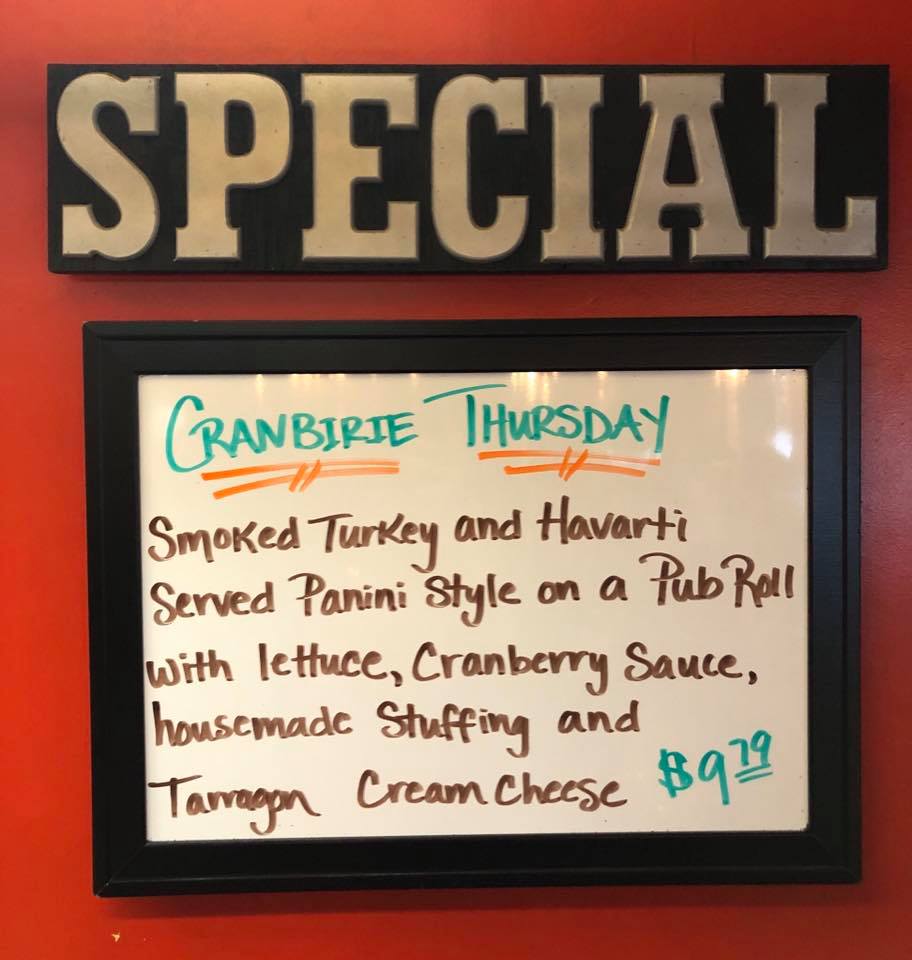 SPECIAL
CRANBIRIE THURSDAY
Smoked Turkey and Havarti
Served Panini Style on a Pub Roll
with lettuce, Cranberry Sauce,
housemade Stuffing and
Tarragon Cream Cheese $9.79